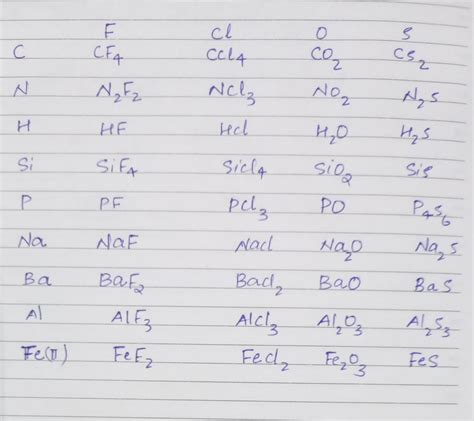 F Cl O S
C CF₄ CCl₄ CO₂ CS₂
N N₂F₂ NCl₃ NO₂ N₂S
H HF HCl H₂O H₂S
Si SiF₄ SiCl₄ SiO₂ SiS
P PF PCl₃ PO P₄S₆
Na NaF NaCl Na₂O Na₂S
Ba BaF₂ BaCl₂ BaO BaS
Al AlF₃ AlCl₃ Al₂O₃ Al₂S₃
Fe(II) FeF₂ FeCl₂ Fe₂O₃ FeS